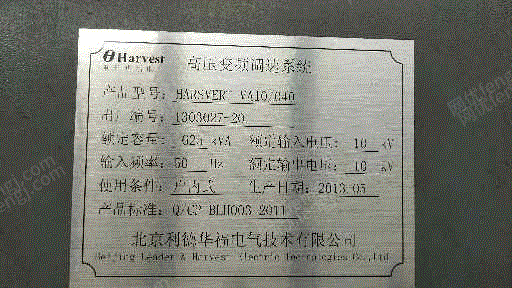 Harvest 高压变频调速系统
产品型号: HARSVERT-VA10/040
出厂编号: 1303027-20
额定容量: 625 kVA 额定输入电压: 10 kV
输入频率: 50 Hz 额定输出电压: 10 kV
使用条件: 户内式 生产日期: 2013.05
产品标准: Q/CP BLH003-2011
北京利德华福电气技术有限公司
Beijing Leader & Harvest Electric Technologies Co.,Ltd